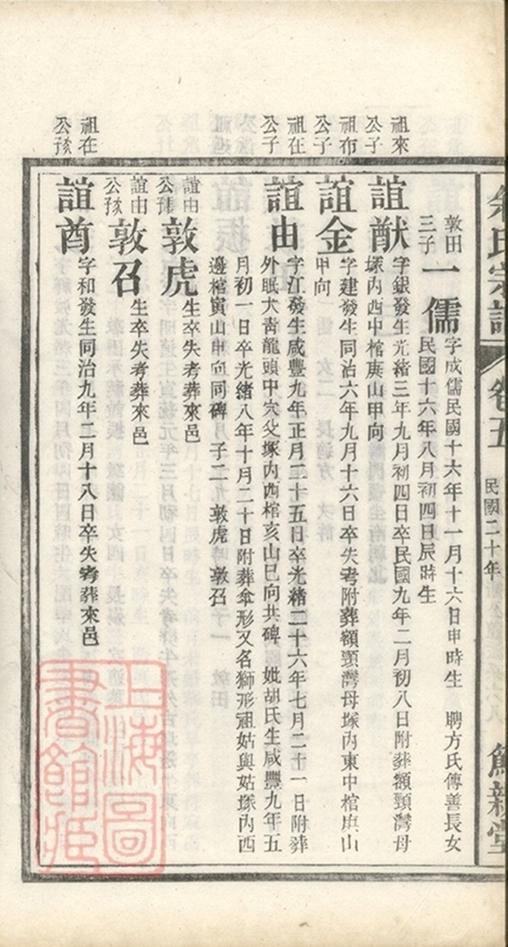 余氏宗譜 卷五 民國二十年
敦田三子 一儒 字成儒民國十六年十一月十六日申時生 聘方氏傳善長女
民國十六年八月初四日辰時生
祖來公子 誼猷 字銀發生光緒三年九月初四日卒民國九年二月初八日附葬額頸灣母
塚內西中棺庚山甲向
祖布公子 誼金 字建發生同治六年九月十六日卒失考附葬額頸灣母塚內東中棺庚山
甲向
祖在公子 誼由 字江發生咸豐九年正月二十五日卒光緒二十六年七月二十一日附葬
外眠犬青龍頭中穴父塚內西棺亥山巳向共碑 妣胡氏生咸豐九年五
月初一日卒光緒八年十月二十日附葬傘形又名獅形祖姑與姑塚內西
邊棺寅山申向同碑 子二 敦虎 敦召
誼由公孩 敦虎 生卒失考葬來邑
誼由公孩 敦召 生卒失考葬來邑
祖在公孩 誼酋 字和發生同治九年二月十八日卒失考葬來邑
上海圖書館藏